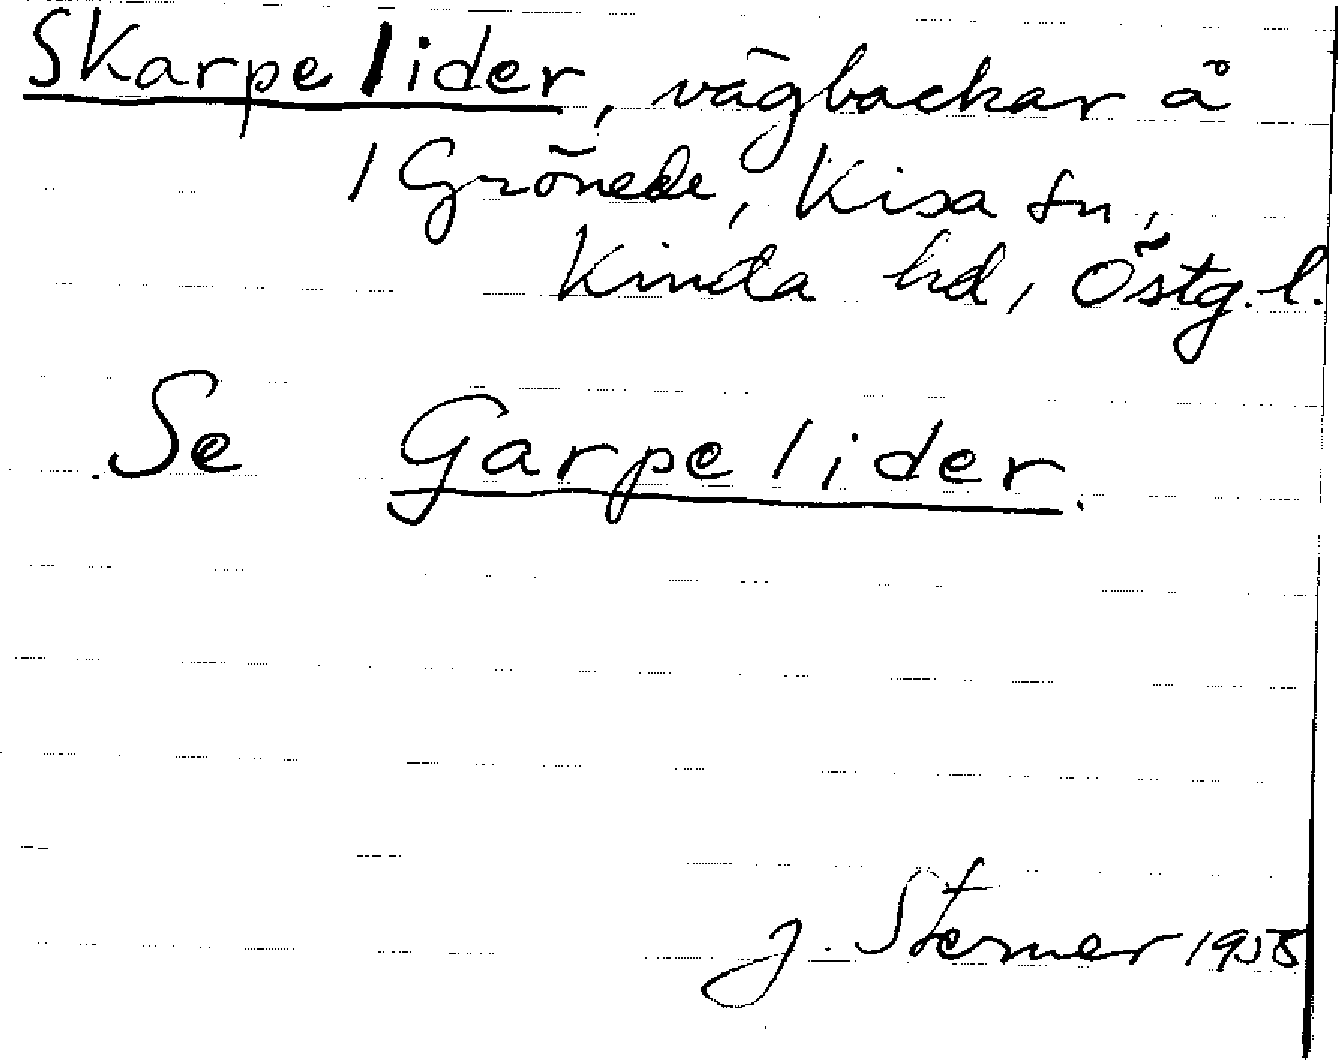 Skarpelider, vägbackar å
1 Grönede, Kisa sn,
Kinda hd, Östg. l.
Se Garpelider.
J. Sterner 1958